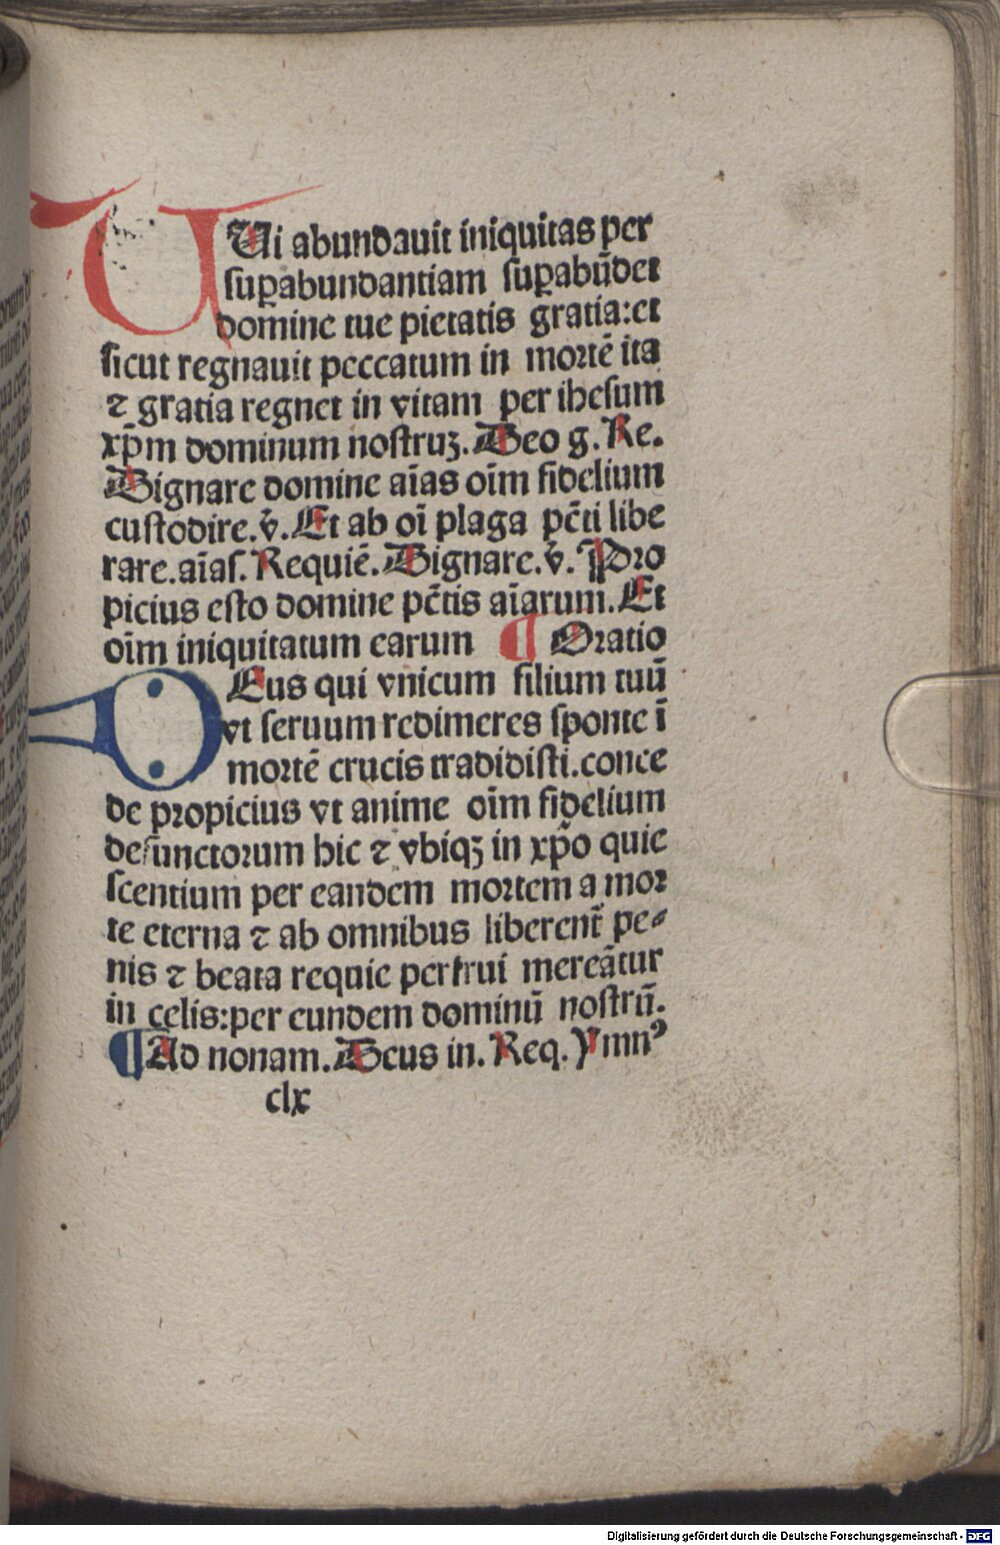 UUi abundauit iniquitas per
suꝑabundantiam suꝑabūdet
domine tue pietatis gratia:et
sicut regnauit peccatum in mortē ita
⁊ gratia regnet in vitam per ihesum
xp̄m dominum nostruꝫ. Deo g. Re.
Dignare domine aīas oīm fidelium
custodire.v̄. Et ab oī plaga pc̄ti libe
rare.aīas. Requiē. Dignare.v̄. Pro
picius esto domine pc̄tis aīarum. Et
oīm iniquitatum earum ¶ Oratio
DEus qui vnicum filium tuū
vt seruum redimeres sponte ī
mortē crucis tradidisti.conce
de propicius vt anime oīm fidelium
defunctorum hic ⁊ vbiqꝫ in xp̄o quie
scentium per eandem mortem a mor
te eterna ⁊ ab omnibus liberent̄ pe⸗
nis ⁊ beata requie perfrui mereātur
in celis:per eundem dominū nostrū.
¶ Ad nonam. Deus in. Req. Ymnꝰ
clx
Digitalisierung gefördert durch die Deutsche Forschungsgemeinschaft - DFG